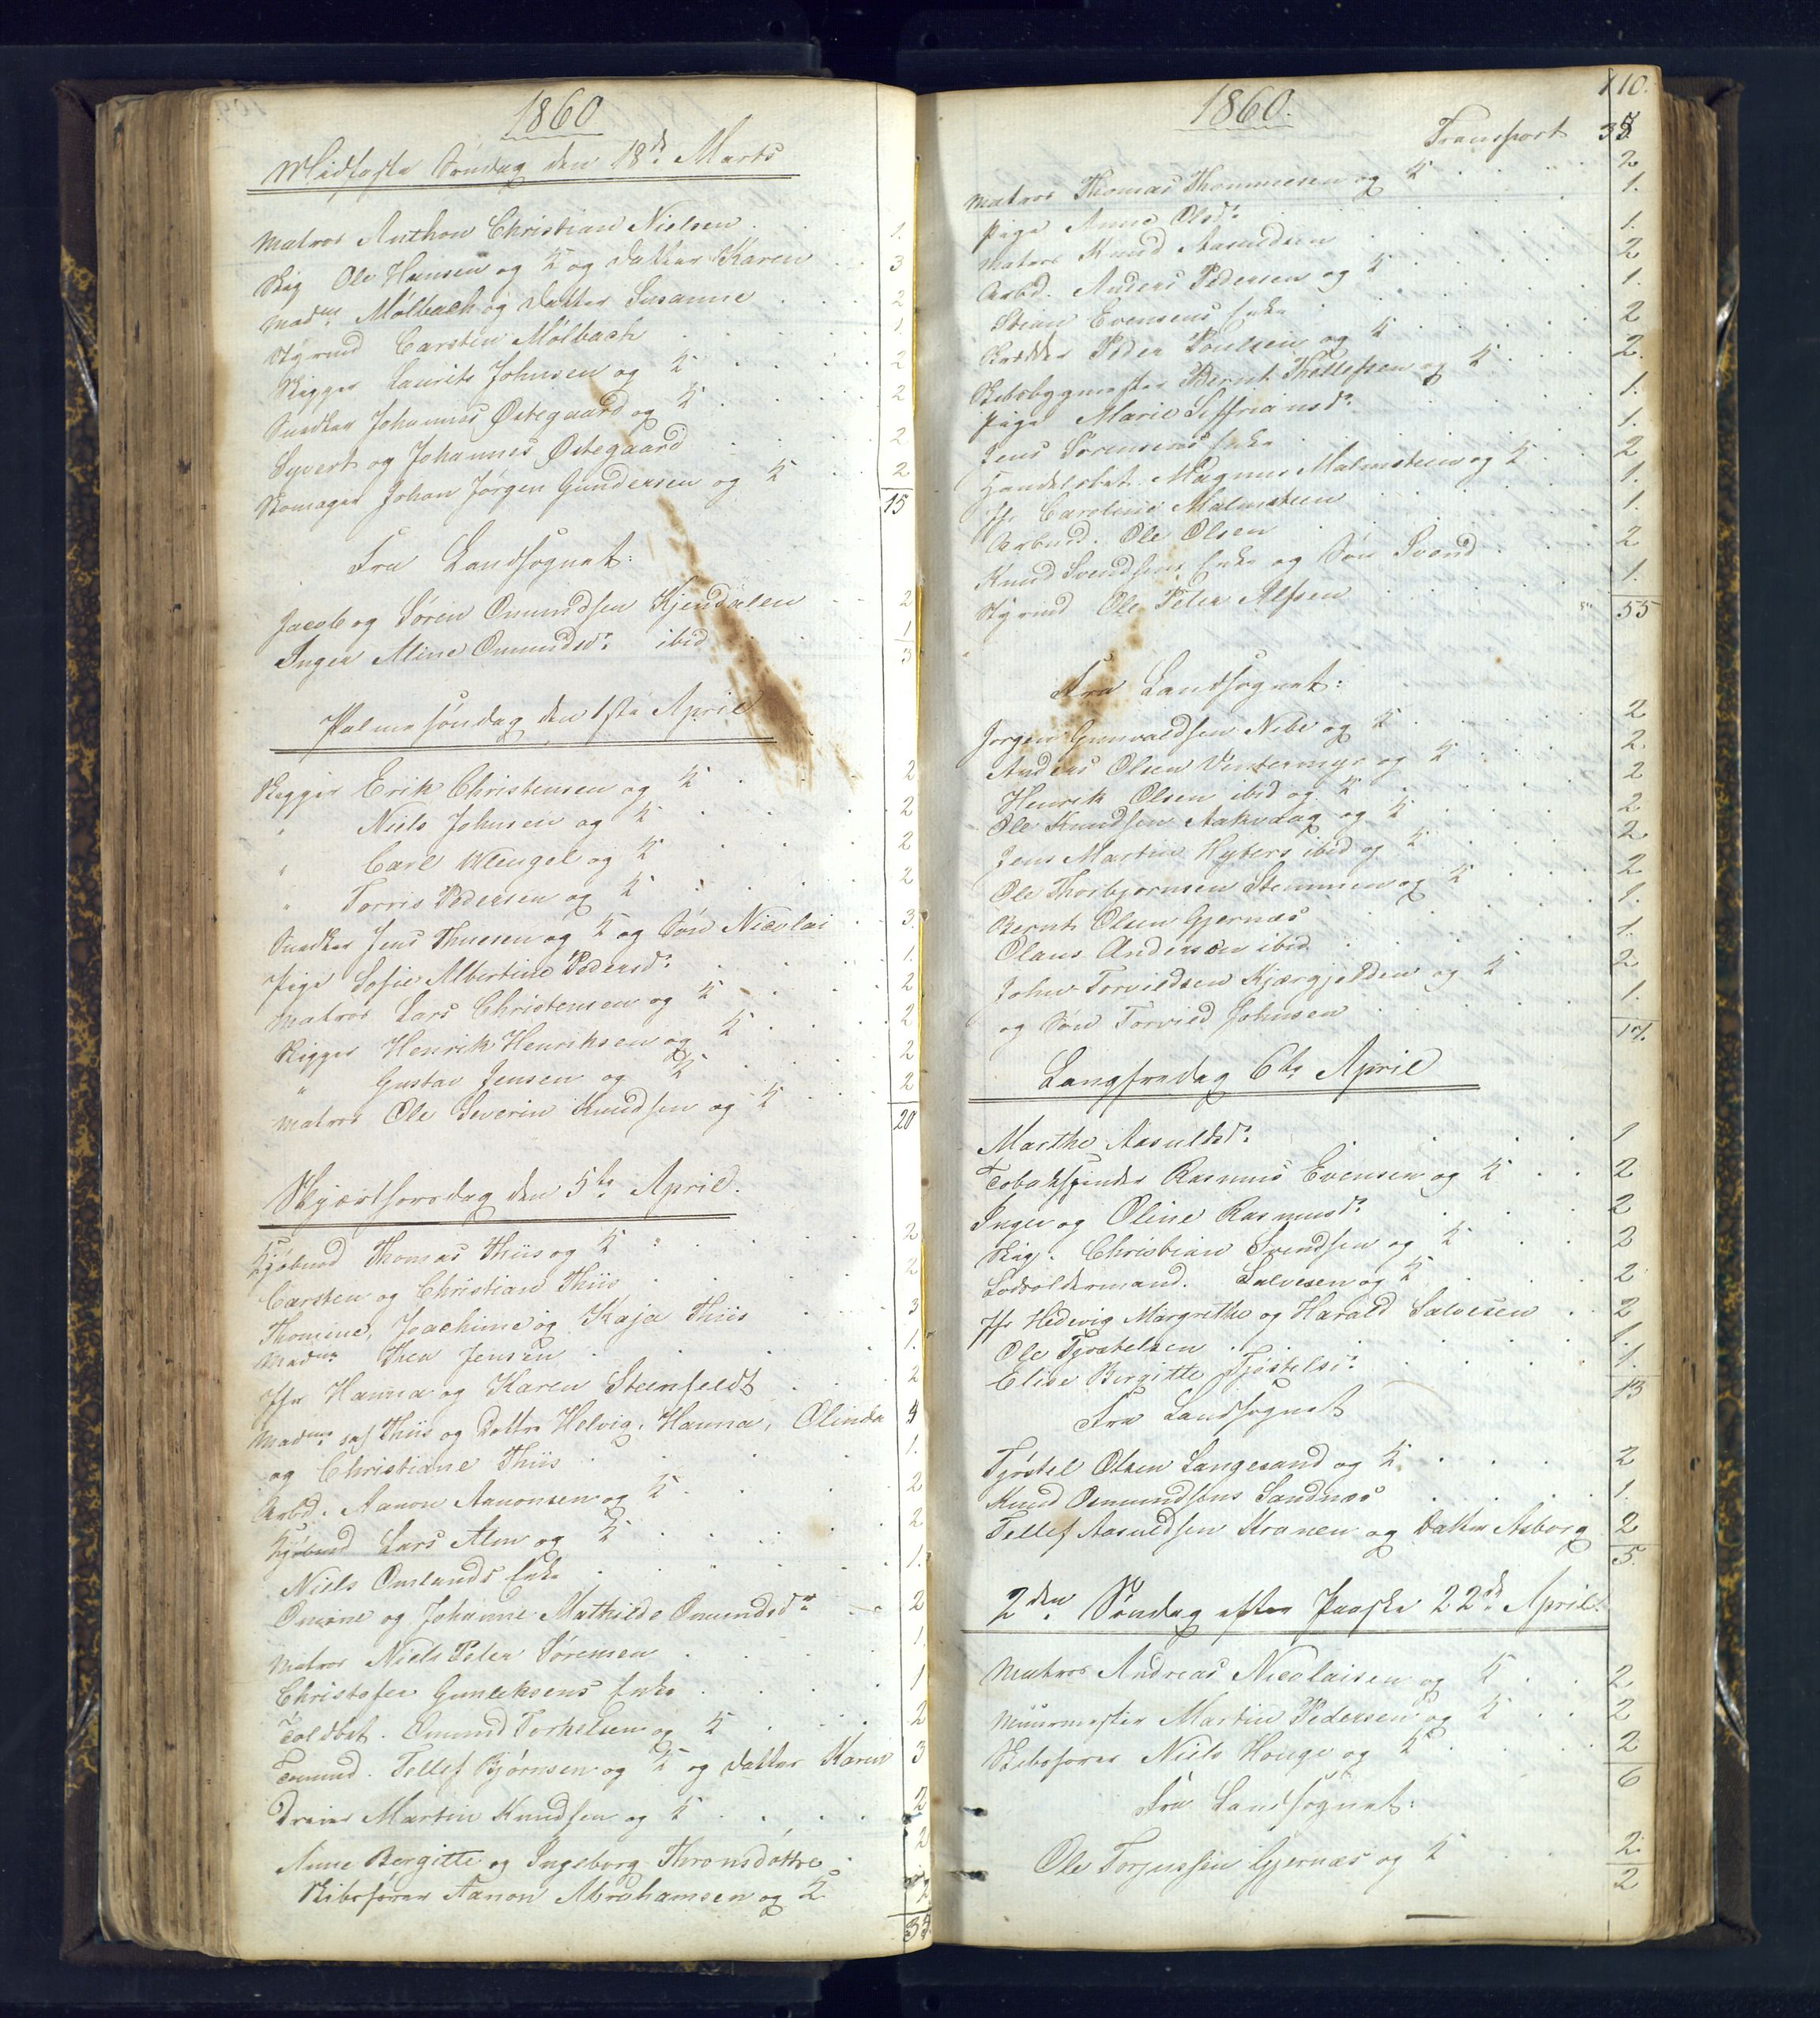 1860
Midfaste Søndag den 18de Marts
Matros Anthon Christian Nielsen 1.
Skig Ole Hansen og K og Datter Karen 3
Madm Mølbach og Datter Susanne 2
Styrmd Carsten Mølbach 1
Rigger Laurits Johnsen og K 2
Snedker Johannes Østegaard og K 2
Syvert og Johannes Østegaard 2
Skomager Johan Jörgen Gundersen og K 2
15
Fra Landsognet:
Jacob og Sören Omundsen Kjendalen 2
Inger Aline Omundsdr ibid 1
3
Palmesøndag den 1ste April
Skipper Erik Christensen og K 2
" Niels Johnsen og K 2
" Carl Wengel og K 2
" Torris Pedersen og K 2
Snedker Jens Thuesen og K og Søn Nicolai 3.
Pige Sofie Albertine Pedersdr 1.
Matros Lars Christensen og K 2
Rigger Henrik Henriksen og K 2
" Gustav Jensen og K 2
Matros Ole Severin Knudsen og K 2
20
Skjærthorsdag den 5te April.
Kjøbmd Thomas Thiis og K 2
Carsten og Christian Thiis 2
Thomine, Joachime og Kaja Thiis 3
Madm Thea Jensen 1.
Jfr Hanna og Karen Steenfeldt 2
Madm sal Thiis og Døttre Helvig, Hanna, Olinda 4
og Christiane Thiis 1.
Arbd. Aanon Aanonsen og K 2
Kjøbmd Lars Alm og K 2
Niels Omlands Enke 1.
Omine og Johanne Mathilde Omundsdr 2
Matros Niels Peter Sörensen 1
Christofer Gunleksens Enke 1
Toldbet. Omund Torkelsen og K 2
Tømmd. Tellef Bjørnsen og K og Datter Karen 3
Dreier Martin Knudsen og K 2
Anne Bergitte og Ingeborg Thronsdøttre 2
Skibsfører Aanon Abrahamsen og K 2
35
110.
1860.
Transport 35
Matros Thomas Thommesen og K 2
Pige Anne Olsdr 1.
Matros Knud Aasuldsen 1.
Arbd. Anders Pedersen og K 2
Stian Evensens Enke 1.
Skrædder Peder Poulsen og K 2
Skibsbygmester Bernt Kittelsen og K 2.
Pige Marie Siffriansdr 1.
Jens Sörensens Enke 1.
Handelsbet. Magnus Malmsteen og K 2
Jfr Caroline Malmsteen 1.
Arbmd. Ole Olsen 1.
Knud Svendsens Enke og Søn Svend 2
Styrmd Ole Peter Alfsen 1.
55
Fra Landsognet:
Jørgen Gunvaldsen Nebe og K 2
Anders Olsen Vintermyr og K 2.
Henrik Olsen ibid og K 2
Ole Knudsen Aakvaag og K 2
Jens Martin Nyberg ibid og K 2.
Ole Thorbjørnsen Stemmen og K 2
Bernt Olsen Gjernæs 1.
Olaus Andersen ibid 1.
John Torvildsen Kjærgjelden og K 2
og Søn Torvild Johnsen 1.
17.
Langfredag 6te April
Marthe Aasuldsdr 1
Tobakspinder Rasmus Evensen og K 2
Inger og Oline Rasmusdr 2
Skig. Christian Svendsen og K 2
Lodsoldermand. Salvesen og K 2
Jfr Hedevig Margrethe og Harald Salvesen 2
Ole Tjøstelsen 1.
Elise Birgitte Tjøstelsdr 1.
13
Fra Landsognet
Tjöstel Olsen Langesand og K 2
Knud Osmundsens Sandnæs 1.
Tellef Aasuldsen Kranen og Datter Asborg 2
5.
2den Søndag efter Paaske 22de April.
Matros Andreas Nicolaisen og K 2
Muurmester Martin Pedersen og K 2
Skibsfører Niels Houge og K 2
6
Fra Landsognet:
Ole Torjussen Gjernæs og K 2
2